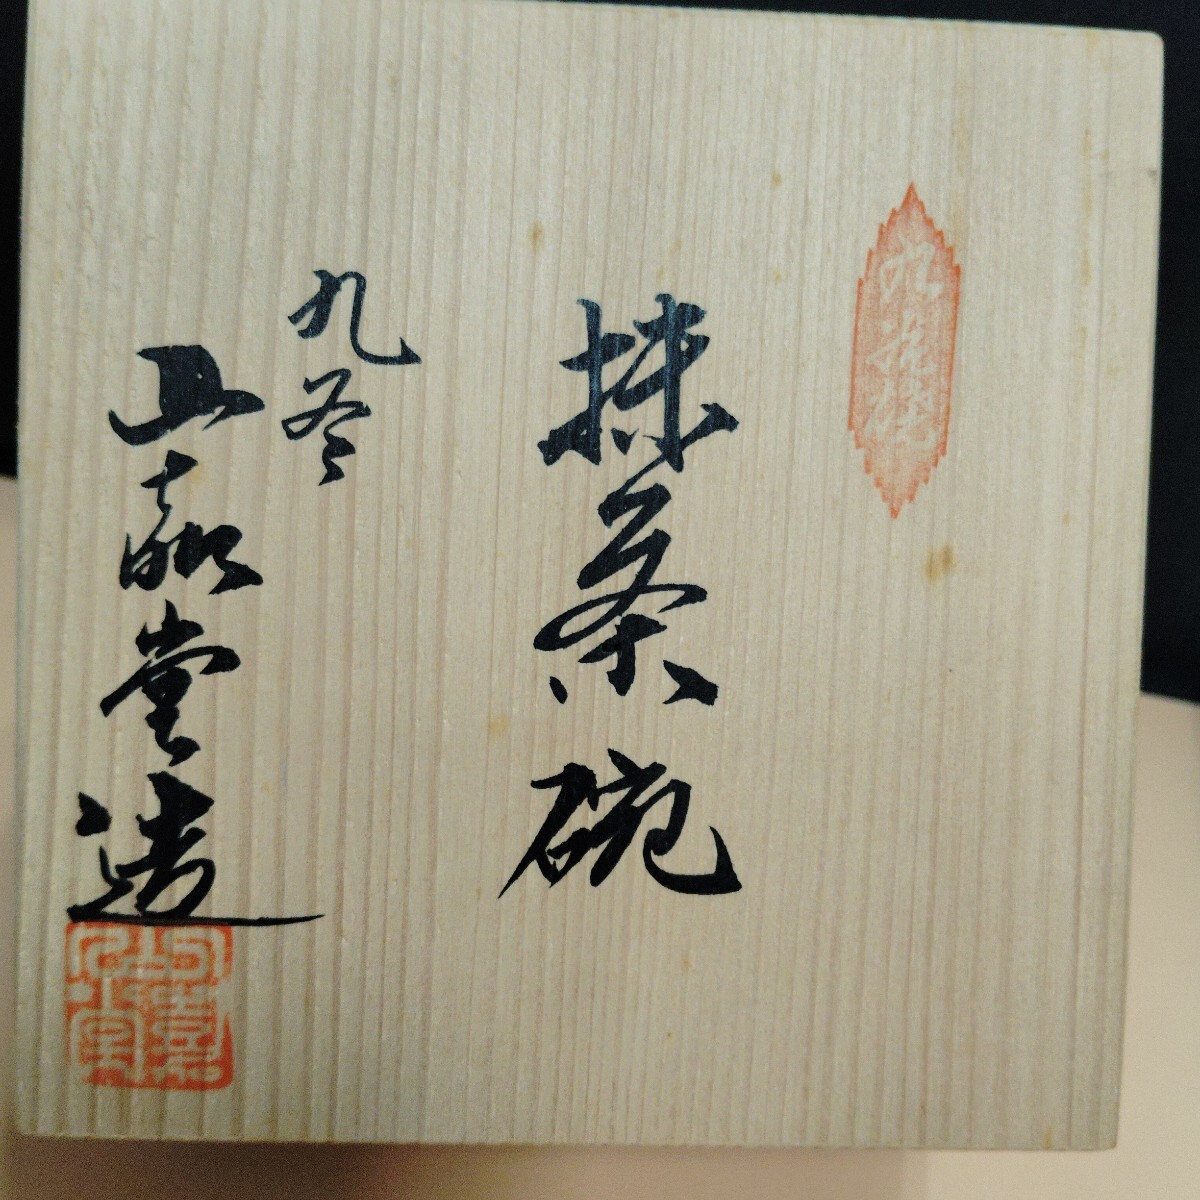 九谷焼
抹茶碗
九谷
山嘉堂造